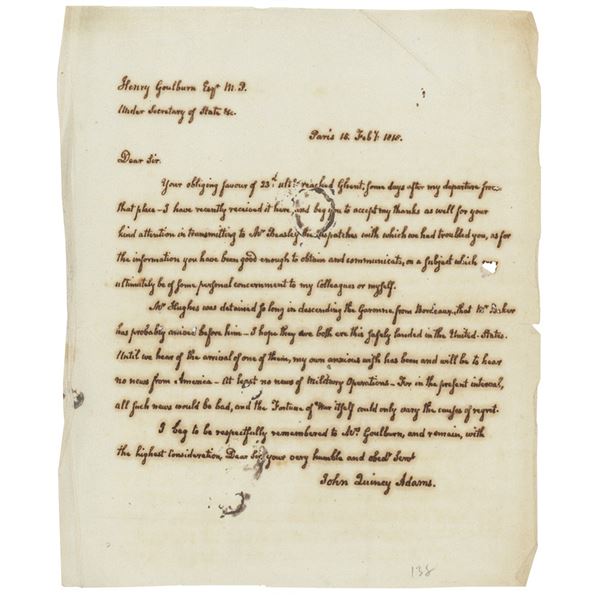 Henry Goulburn Esqr M.P.
Under Secretary of State &c.
Paris 15. Feby. 1815.
Dear Sir.
Your obliging favour of 23d ulto reached Ghent, some days after my departure from
that place - I have recently received it here, and beg you to accept my thanks as well for your
kind attention in transmitting to Mr Beasley the dispatches with which we had troubled you, as for
the information you have been good enough to obtain and communicate, on a subject which may
ultimately be of some personal concernment to my colleagues or myself.
Mr Hughes was detained so long in descending the Garonne from Bordeaux, that Mr Baker
has probably arrived before him - I hope they are both ere this safely landed in the United-States.
Until we hear of the arrival of one of them, my own anxious wish has been and will be to hear
no news from America - At least no news of Military Operations - For in the present interval,
all such news would be bad, and the Fortune of War itself could only vary the causes of regret.
I beg to be respectfully remembered to Mrs Goulburn, and remain, with
the highest consideration, Dear Sir, your very humble and obedt Servt
John Quincy Adams.
138